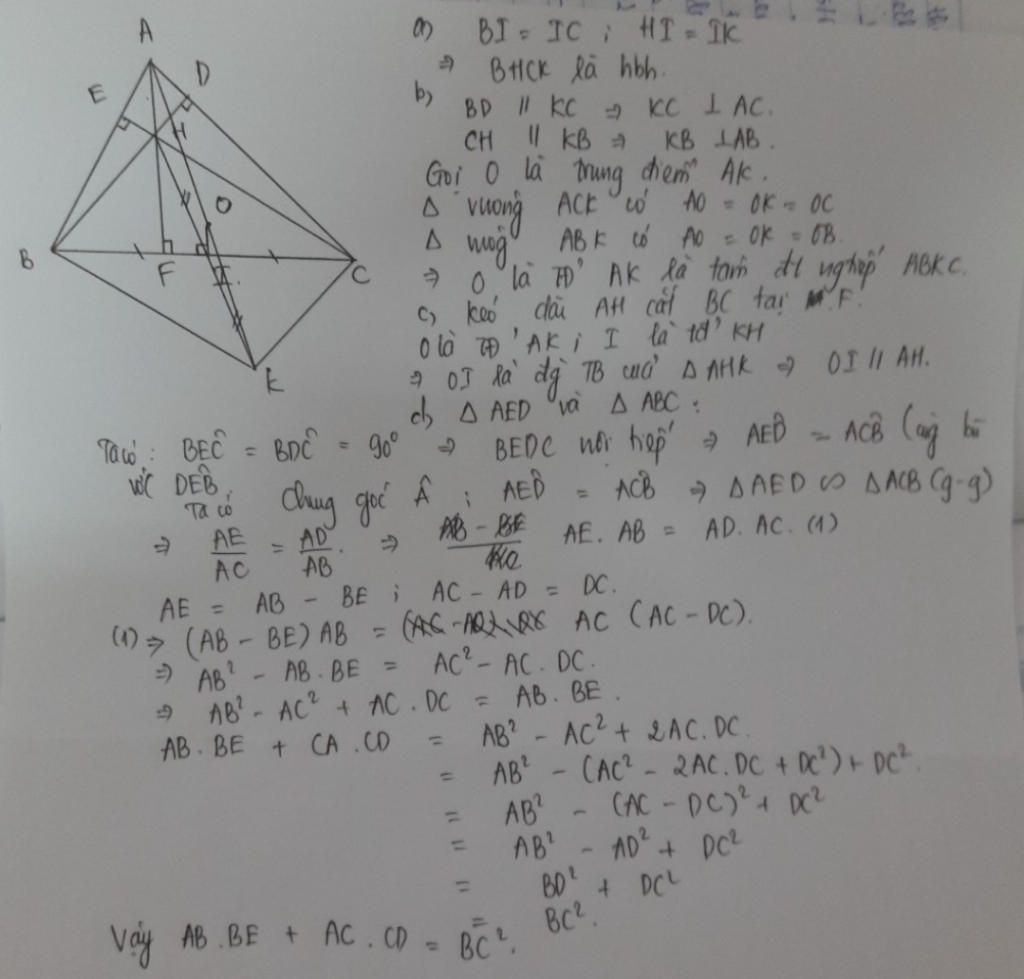 A
D
E
H
O
B
F
I
C
K
a) BI = IC ; HI = IK
⇒ BHCK là hbh.
b) BD // KC ⇒ KC ⊥ AC.
CH // KB ⇒ KB ⊥ AB.
Gọi O là trung điểm AK.
Δ vuông ACK có AO = OK = OC
Δ vuông ABK có AO = OK = OB.
⇒ O là TĐ' AK là tâm đt nghtiếp ABKC.
c) kéo dài AH cắt BC tại F.
O là TĐ' AK ; I là tđ' KH
⇒ OI là đg TB của Δ AHK ⇒ OI // AH.
d) Δ AED và Δ ABC :
Ta có : BEC = BDC = 90° ⇒ BEDC nội tiếp ⇒ AED = ACB (cùng bù
với DEB,
Ta có chung góc Â ; AED = ACB ⇒ ΔAED ∽ ΔACB (g-g)
⇒ AE/AC = AD/AB. ⇒ AE. AB = AD. AC. (1)
AE = AB - BE ; AC - AD = DC.
(1) ⇒ (AB - BE) AB = AC (AC - DC).
⇒ AB² - AB. BE = AC² - AC. DC.
⇒ AB² - AC² + AC . DC = AB. BE .
AB. BE + CA . CD = AB² - AC² + 2AC. DC.
= AB² - (AC² - 2AC. DC + DC²) + DC².
= AB² - (AC - DC)² + DC²
= AB² - AD² + DC²
= BD² + DC²
= BC².
Vậy AB . BE + AC . CD = BC².